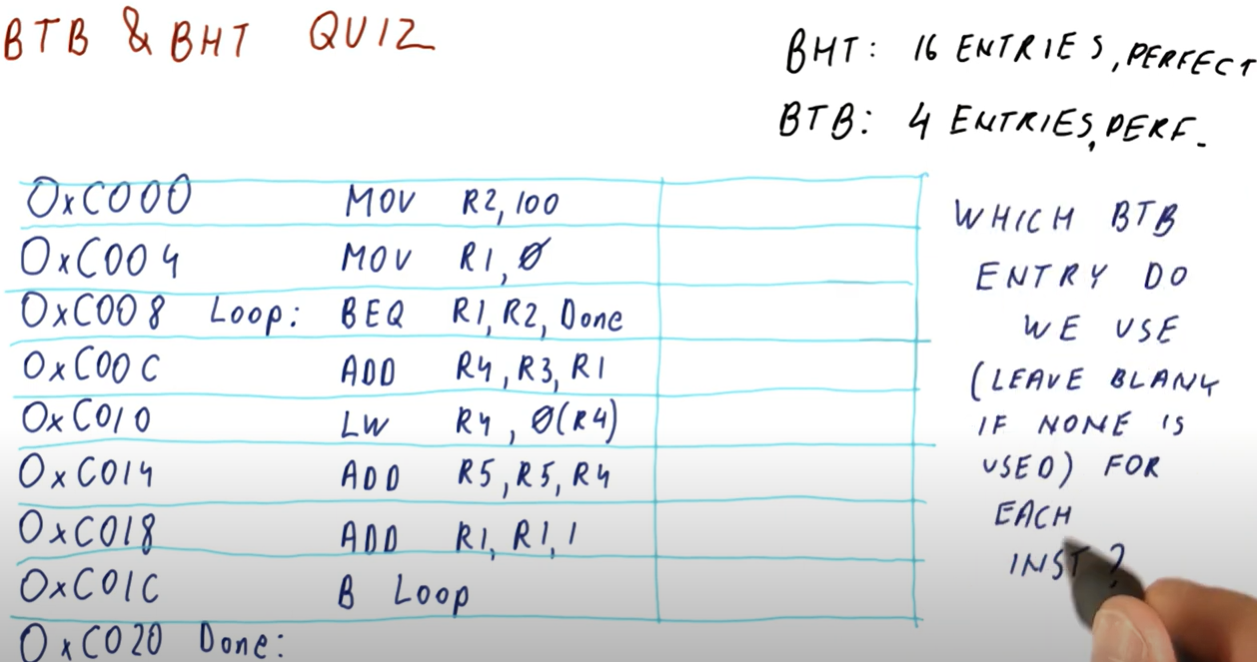 BTB & BHT QUIZ
BHT: 16 ENTRIES, PERFECT
BTB: 4 ENTRIES, PERF.
0xC000 MOV R2, 100
0xC004 MOV R1, 0
0xC008 Loop: BEQ R1, R2, Done
0xC00C ADD R4, R3, R1
0xC010 LW R4, 0(R4)
0xC014 ADD R5, R5, R4
0xC018 ADD R1, R1, 1
0xC01C B Loop
0xC020 Done:
WHICH BTB
ENTRY DO
WE USE
(LEAVE BLANK
IF NONE IS
USED) FOR
EACH
INST?